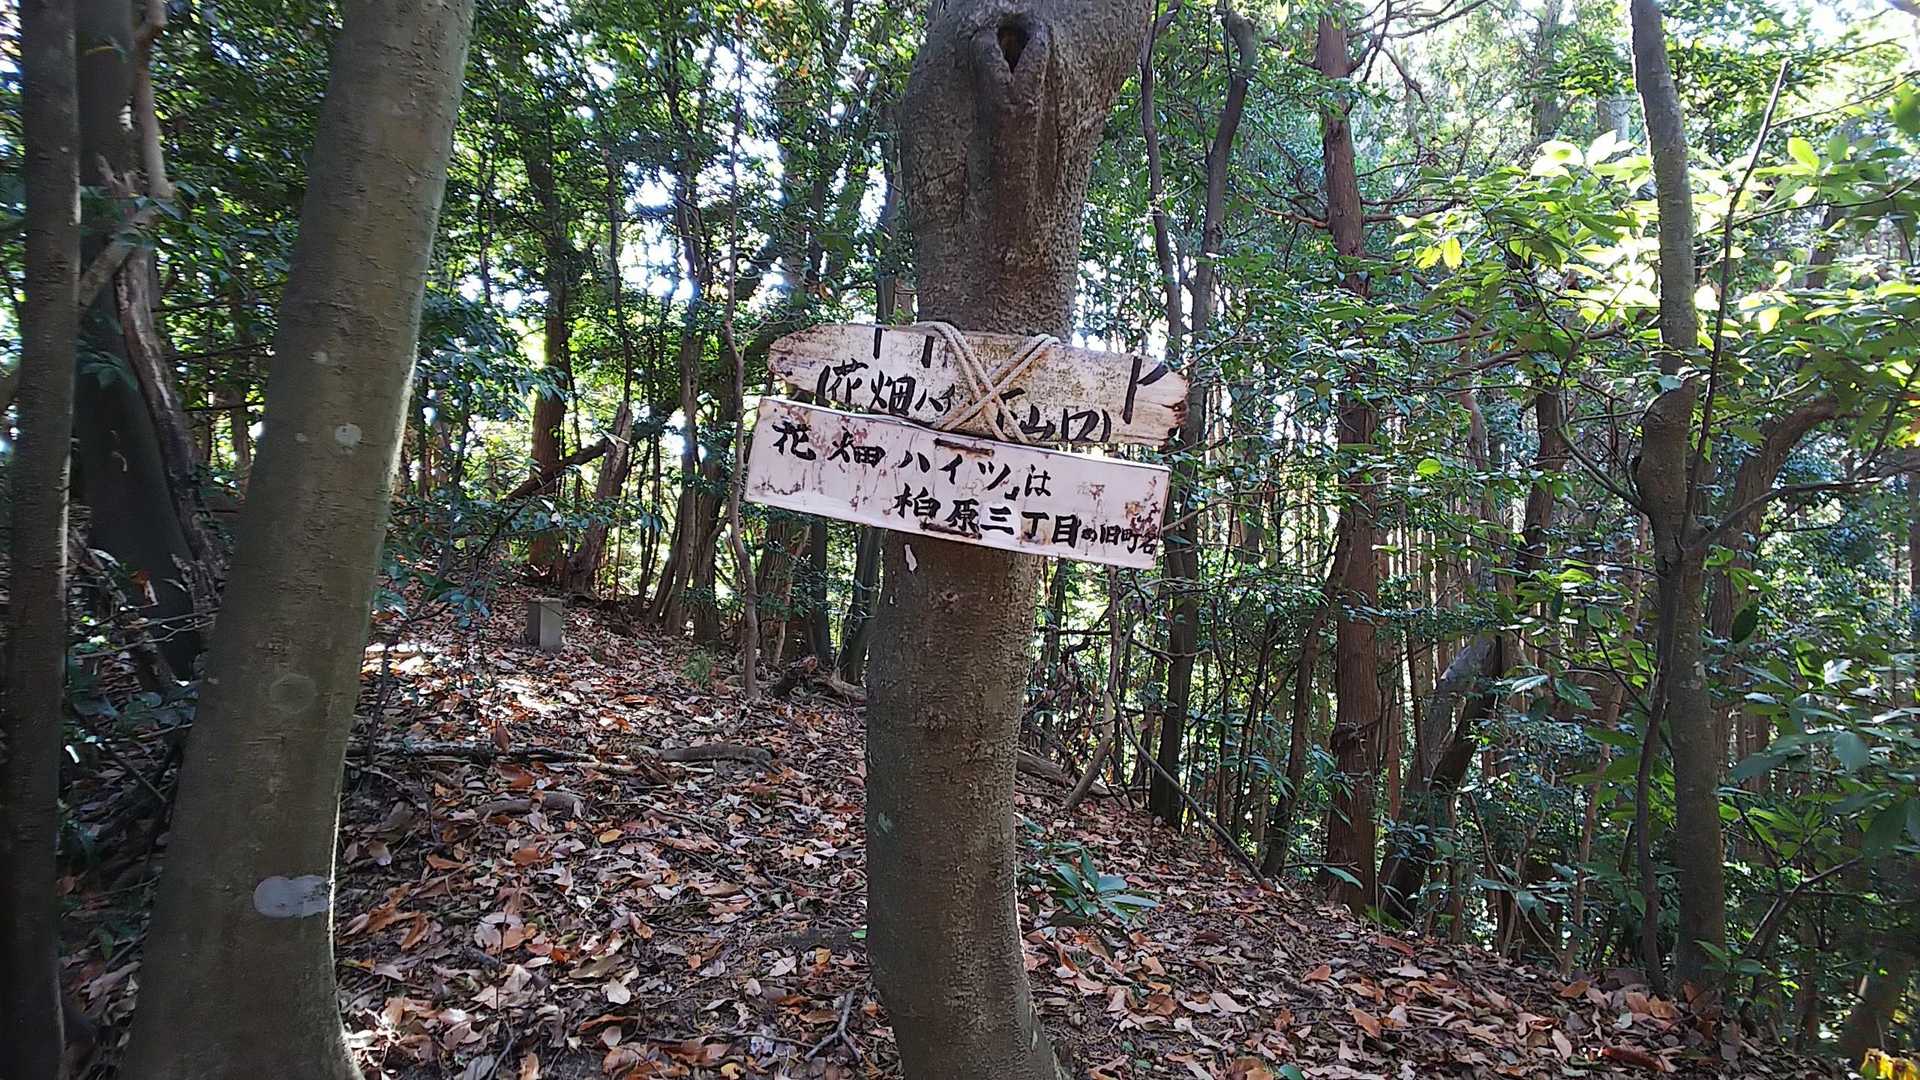 (花畑ハイ 山口)
花畑ハイツ」は
柏原三丁目の旧町名